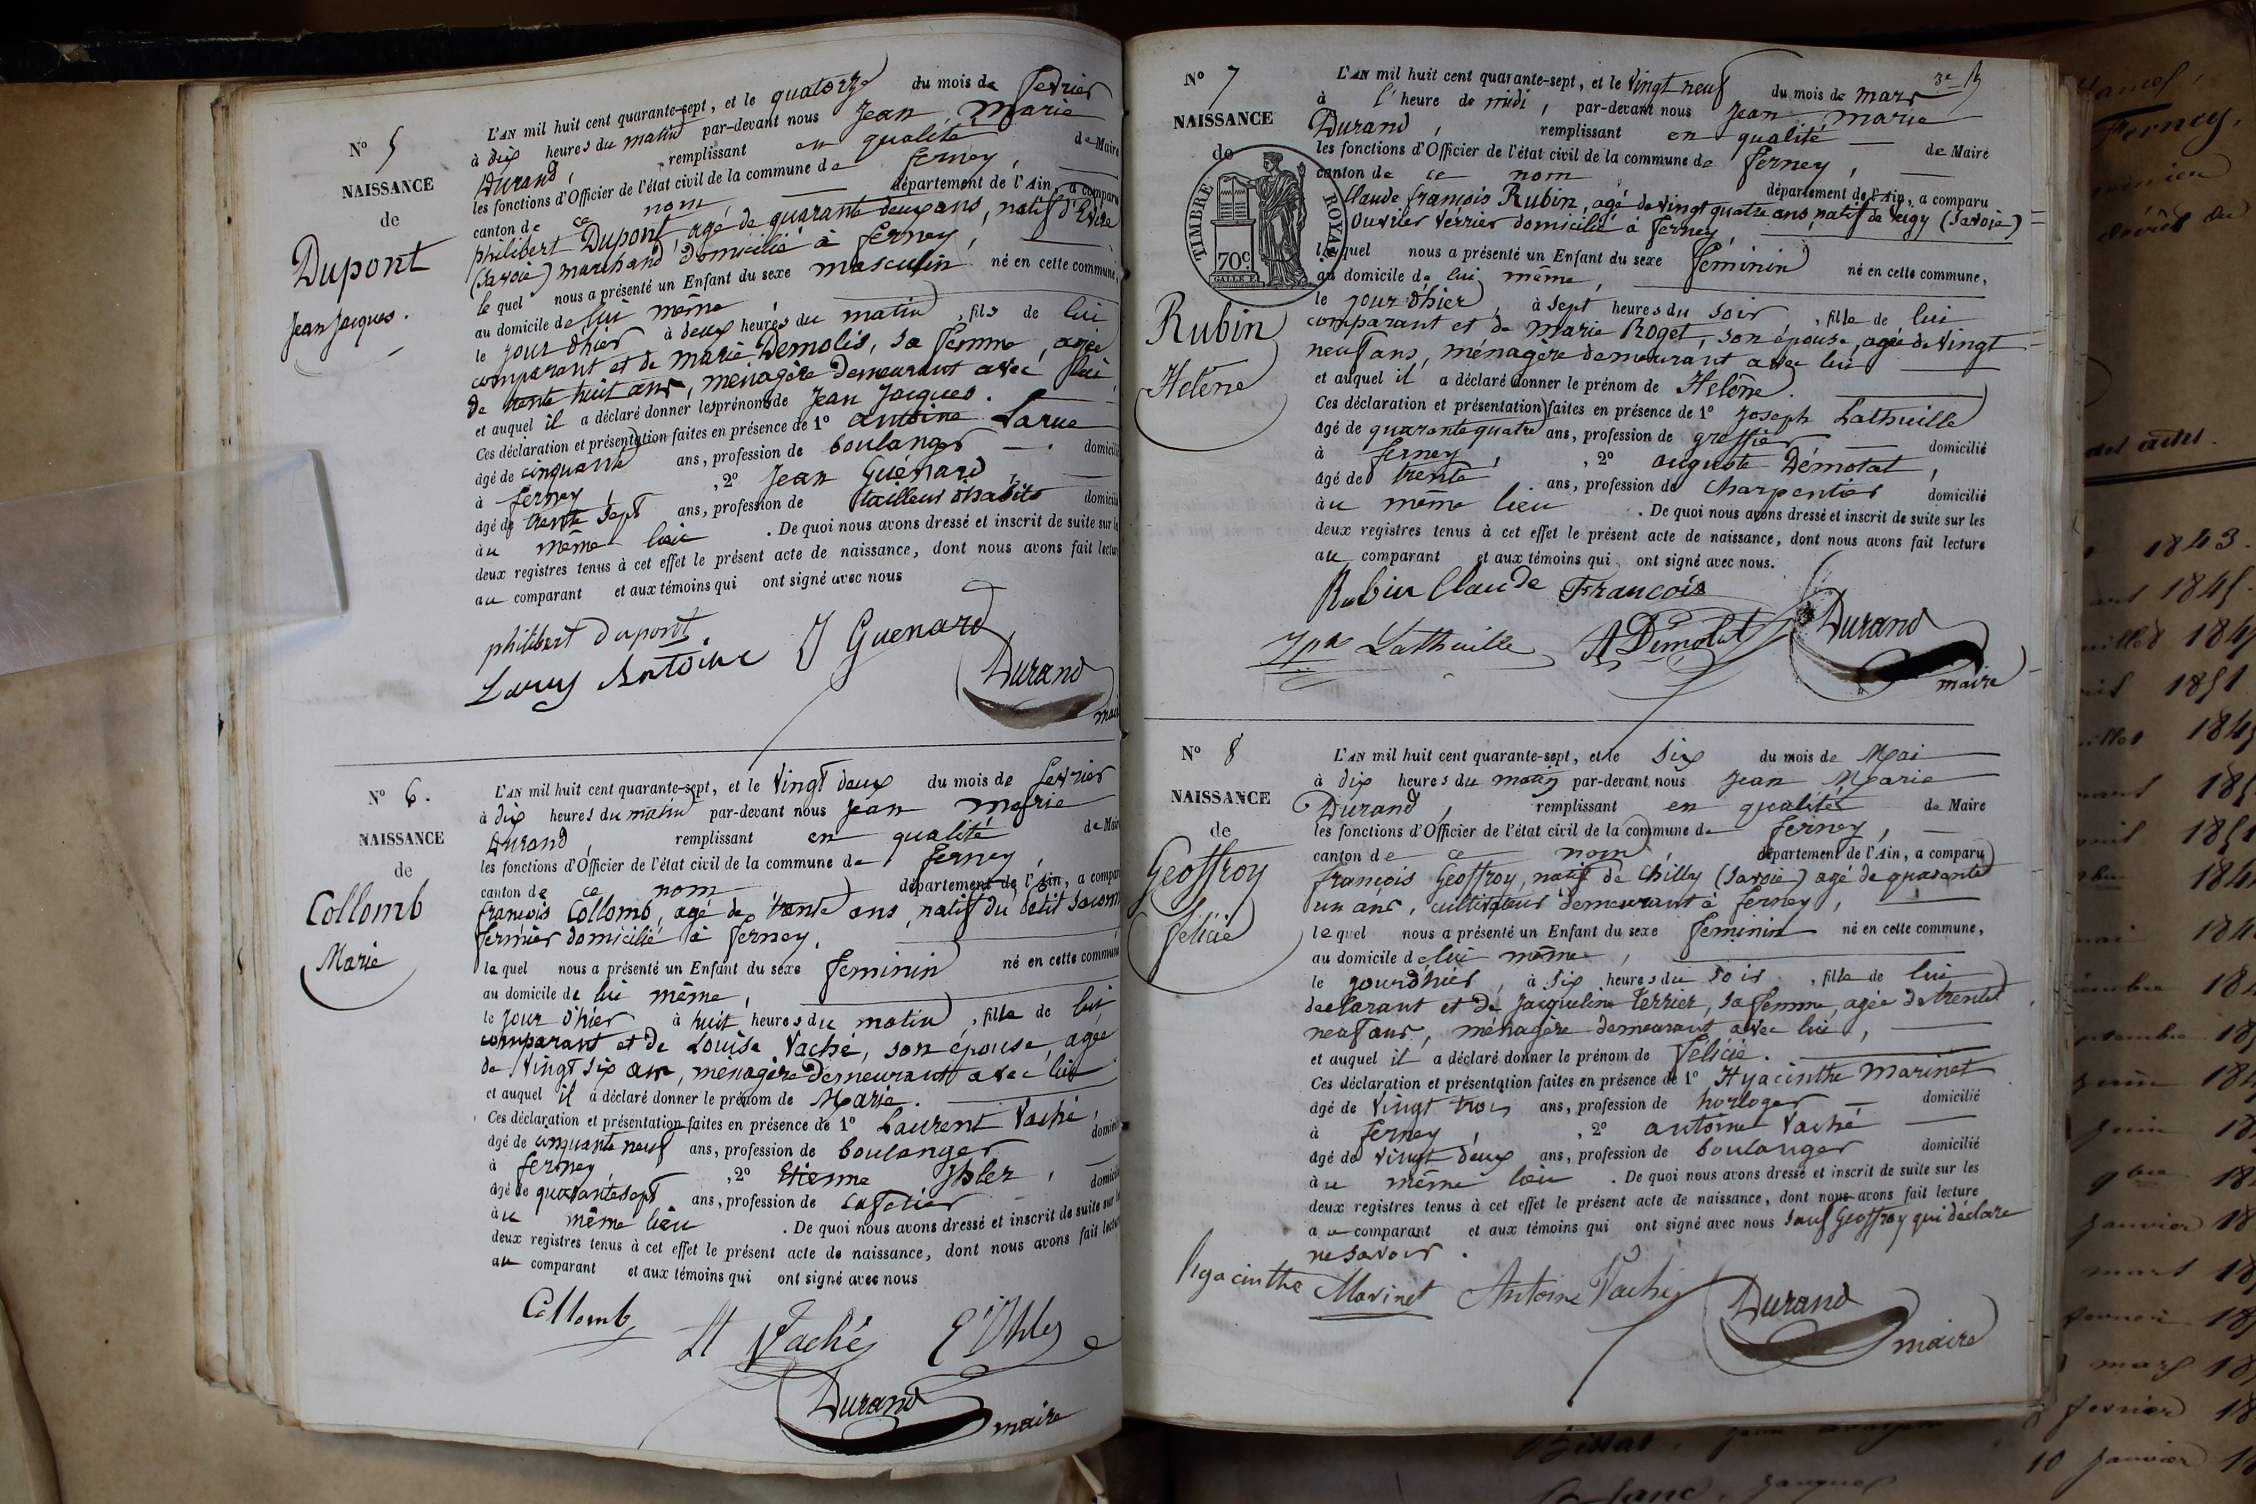 N° 5
NAISSANCE
de
Dupont
Jean Jacques.
L'AN mil huit cent quarante-sept, et le quatorze du mois de fevrier
à dix heures du matin par-devant nous Jean Marie
Durand, remplissant en qualité de Maire
les fonctions d'Officier de l'état civil de la commune de ferney,
canton de ce nom département de l'Ain, a comparu
philibert Dupont agé de quarante deux ans, natif d'Evire
(Savoie) marchand domicilié à ferney,
lequel nous a présenté un Enfant du sexe masculin né en cette commune,
au domicile de lui même
le jour d'hier à deux heures du matin, fils de lui
comparant et de marie Demolis, sa femme, agée
de trente huit ans, ménagère demeurant avec lui,
et auquel il a déclaré donner les prénoms de Jean Jacques.
Ces déclaration et présentation faites en présence de 1° antoine Larue
âgé de cinquante ans, profession de boulanger domicilié
à ferney, 2° Jean Guénard,
âgé de trente sept ans, profession de tailleur d'habits domicilié
au même lieu. De quoi nous avons dressé et inscrit de suite sur les
deux registres tenus à cet effet le présent acte de naissance, dont nous avons fait lecture
au comparant et aux témoins qui ont signé avec nous
philibert dupont
Antoine J Guenard
Durand
maire
N° 6.
NAISSANCE
de
Collomb
Marie
L'AN mil huit cent quarante-sept, et le vingt deux du mois de fevrier
à dix heures du matin par-devant nous Jean Marie
Durand, remplissant en qualité de Maire
les fonctions d'Officier de l'état civil de la commune de ferney,
canton de ce nom département de l'Ain, a comparu
françois Collomb, agé de trente ans, natif du petit Saconn
fermier domicilié à ferney,
lequel nous a présenté un Enfant du sexe feminin né en cette commune
au domicile de lui même,
le jour d'hier à huit heures du matin, fille de lui
comparant et de Louise Vaché, son épouse, agée
de vingt six ans, ménagère demeurant avec lui
et auquel il a déclaré donner le prénom de Marie.
Ces déclaration et présentation faites en présence de 1° Laurent Vaché,
âgé de cinquante neuf ans, profession de boulanger domicilié
à ferney, 2° Etienne,
âgé de quarante sept ans, profession de cafetier domicilié
au même lieu. De quoi nous avons dressé et inscrit de suite sur les
deux registres tenus à cet effet le présent acte de naissance, dont nous avons fait lecture
au comparant et aux témoins qui ont signé avec nous
Collomb
Vaché
Durand
maire
3e
N° 7
NAISSANCE
de
TIMBRE ROYAL
70c.
Rubin
Helène
L'AN mil huit cent quarante-sept, et le vingt neuf du mois de mars
à l'heure de midi, par-devant nous Jean marie
Durand, remplissant en qualité de Maire
les fonctions d'Officier de l'état civil de la commune de ferney,
canton de ce nom département de l'Ain, a comparu
Claude françois Rubin, agé de vingt quatre ans, natif de Veigy (Savoie)
Ouvrier verrier domicilié à ferney,
lequel nous a présenté un Enfant du sexe feminin né en cette commune,
au domicile de lui même,
le jour d'hier, à sept heures du soir, fille de lui
comparant et de marie Roget, son épouse, agée de vingt
neuf ans, ménagère demeurant avec lui
et auquel il a déclaré donner le prénom de Helène.
Ces déclaration et présentation faites en présence de 1° Joseph Lathuille
âgé de quarante quatre ans, profession de greffier domicilié
à ferney, 2° auguste Démolat,
âgé de trente ans, profession de charpentier domicilié
au même lieu. De quoi nous avons dressé et inscrit de suite sur les
deux registres tenus à cet effet le présent acte de naissance, dont nous avons fait lecture
au comparant et aux témoins qui ont signé avec nous.
Rubin Claude François
Lathuille A Démolat Durand
maire
N° 8
NAISSANCE
de
Geoffroy
félicie
L'AN mil huit cent quarante-sept, et le six du mois de Mai
à dix heures du matin par-devant nous Jean Marie
Durand, remplissant en qualité de Maire
les fonctions d'Officier de l'état civil de la commune de ferney,
canton de ce nom, département de l'Ain, a comparu
françois Geoffroy, natif de Chilly (Savoie) agé de quarante
un ans, cultivateur demeurant à ferney,
lequel nous a présenté un Enfant du sexe feminin né en cette commune,
au domicile de lui même,
le jour d'hier, à six heures du soir, fille de lui
declarant et de Jacqueline Terrier, sa femme, agée de trente
neuf ans, ménagère demeurant avec lui,
et auquel il a déclaré donner le prénom de félicie.
Ces déclaration et présentation faites en présence de 1° Hyacinthe Marinet
âgé de vingt trois ans, profession de horloger domicilié
à ferney, 2° antoine Vaché
âgé de vingt deux ans, profession de boulanger domicilié
au même lieu. De quoi nous avons dressé et inscrit de suite sur les
deux registres tenus à cet effet le présent acte de naissance, dont nous avons fait lecture
au comparant et aux témoins qui ont signé avec nous sauf Geoffroy qui déclare
ne savoir.
hyacinthe Marinet Antoine Vaché Durand
maire
Ferney,
1843.
1845.
1851
10 janvier